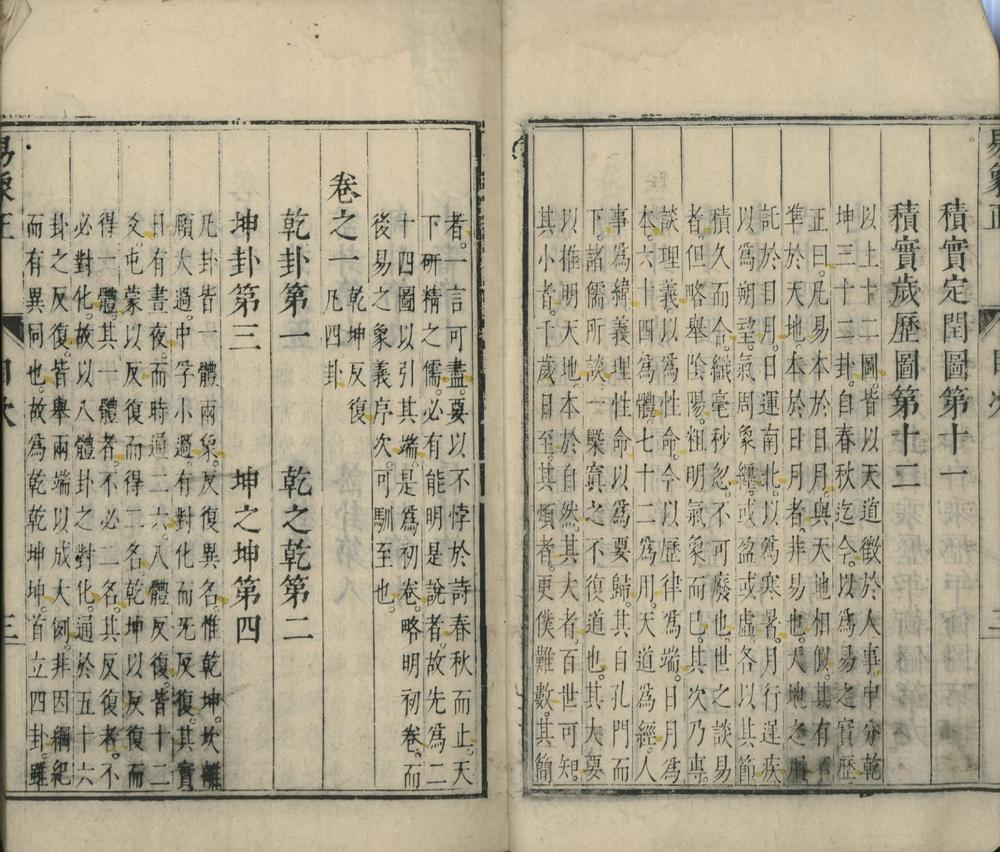 積實定閏圖第十一
積實歲歷圖第十二
以上十二圖皆以天道徵於人事中分乾
坤三十三卦自春秋迄今以為易之實歷
正曰凡易本於日月與天地相似其有
準於天地本於日月者非易也天地之用
託於日月日運南北以為寒暑月行遲疾
以為朔望氣周象纏或盈或虛各以其節
積久而合纖毫秒忽不可廢也世之談易
者但略舉陰陽粗明氣象而已其次乃專
談理義以為性命今以歷律為端日月為
本六十四為體七十二為用天道為經人
事為緯義理性命以為要歸其自孔門而
下諸儒所談一槩寘之不復道也其大要
以推明天地本於自然其大者百世可知
其小者千歲日至其煩者更僕難數其簡
者一言可盡要以不悖於詩春秋而止天
下研精之儒必有能明是說者故先為二
十四圖以引其端是為初卷略明初卷而
後易之象義序次可馴至也
卷之一 乾坤反復 凡四卦
乾卦第一 乾之乾第二
坤卦第三 坤之坤第四
凡卦皆一體兩象反復異名惟乾坤坎離
頤大過中孚小過有對化而旡反復其實
日有晝夜而時通二六八體反復皆十二
爻屯蒙以反復而得二名乾坤以反復而
得一體其一體者不必二名其反復者不
必對化故以八體卦之對化通於五十六
卦之反復皆舉兩端以成大例非因綱紀
而有異同也故為乾乾坤坤首立四卦雖
易象正
三